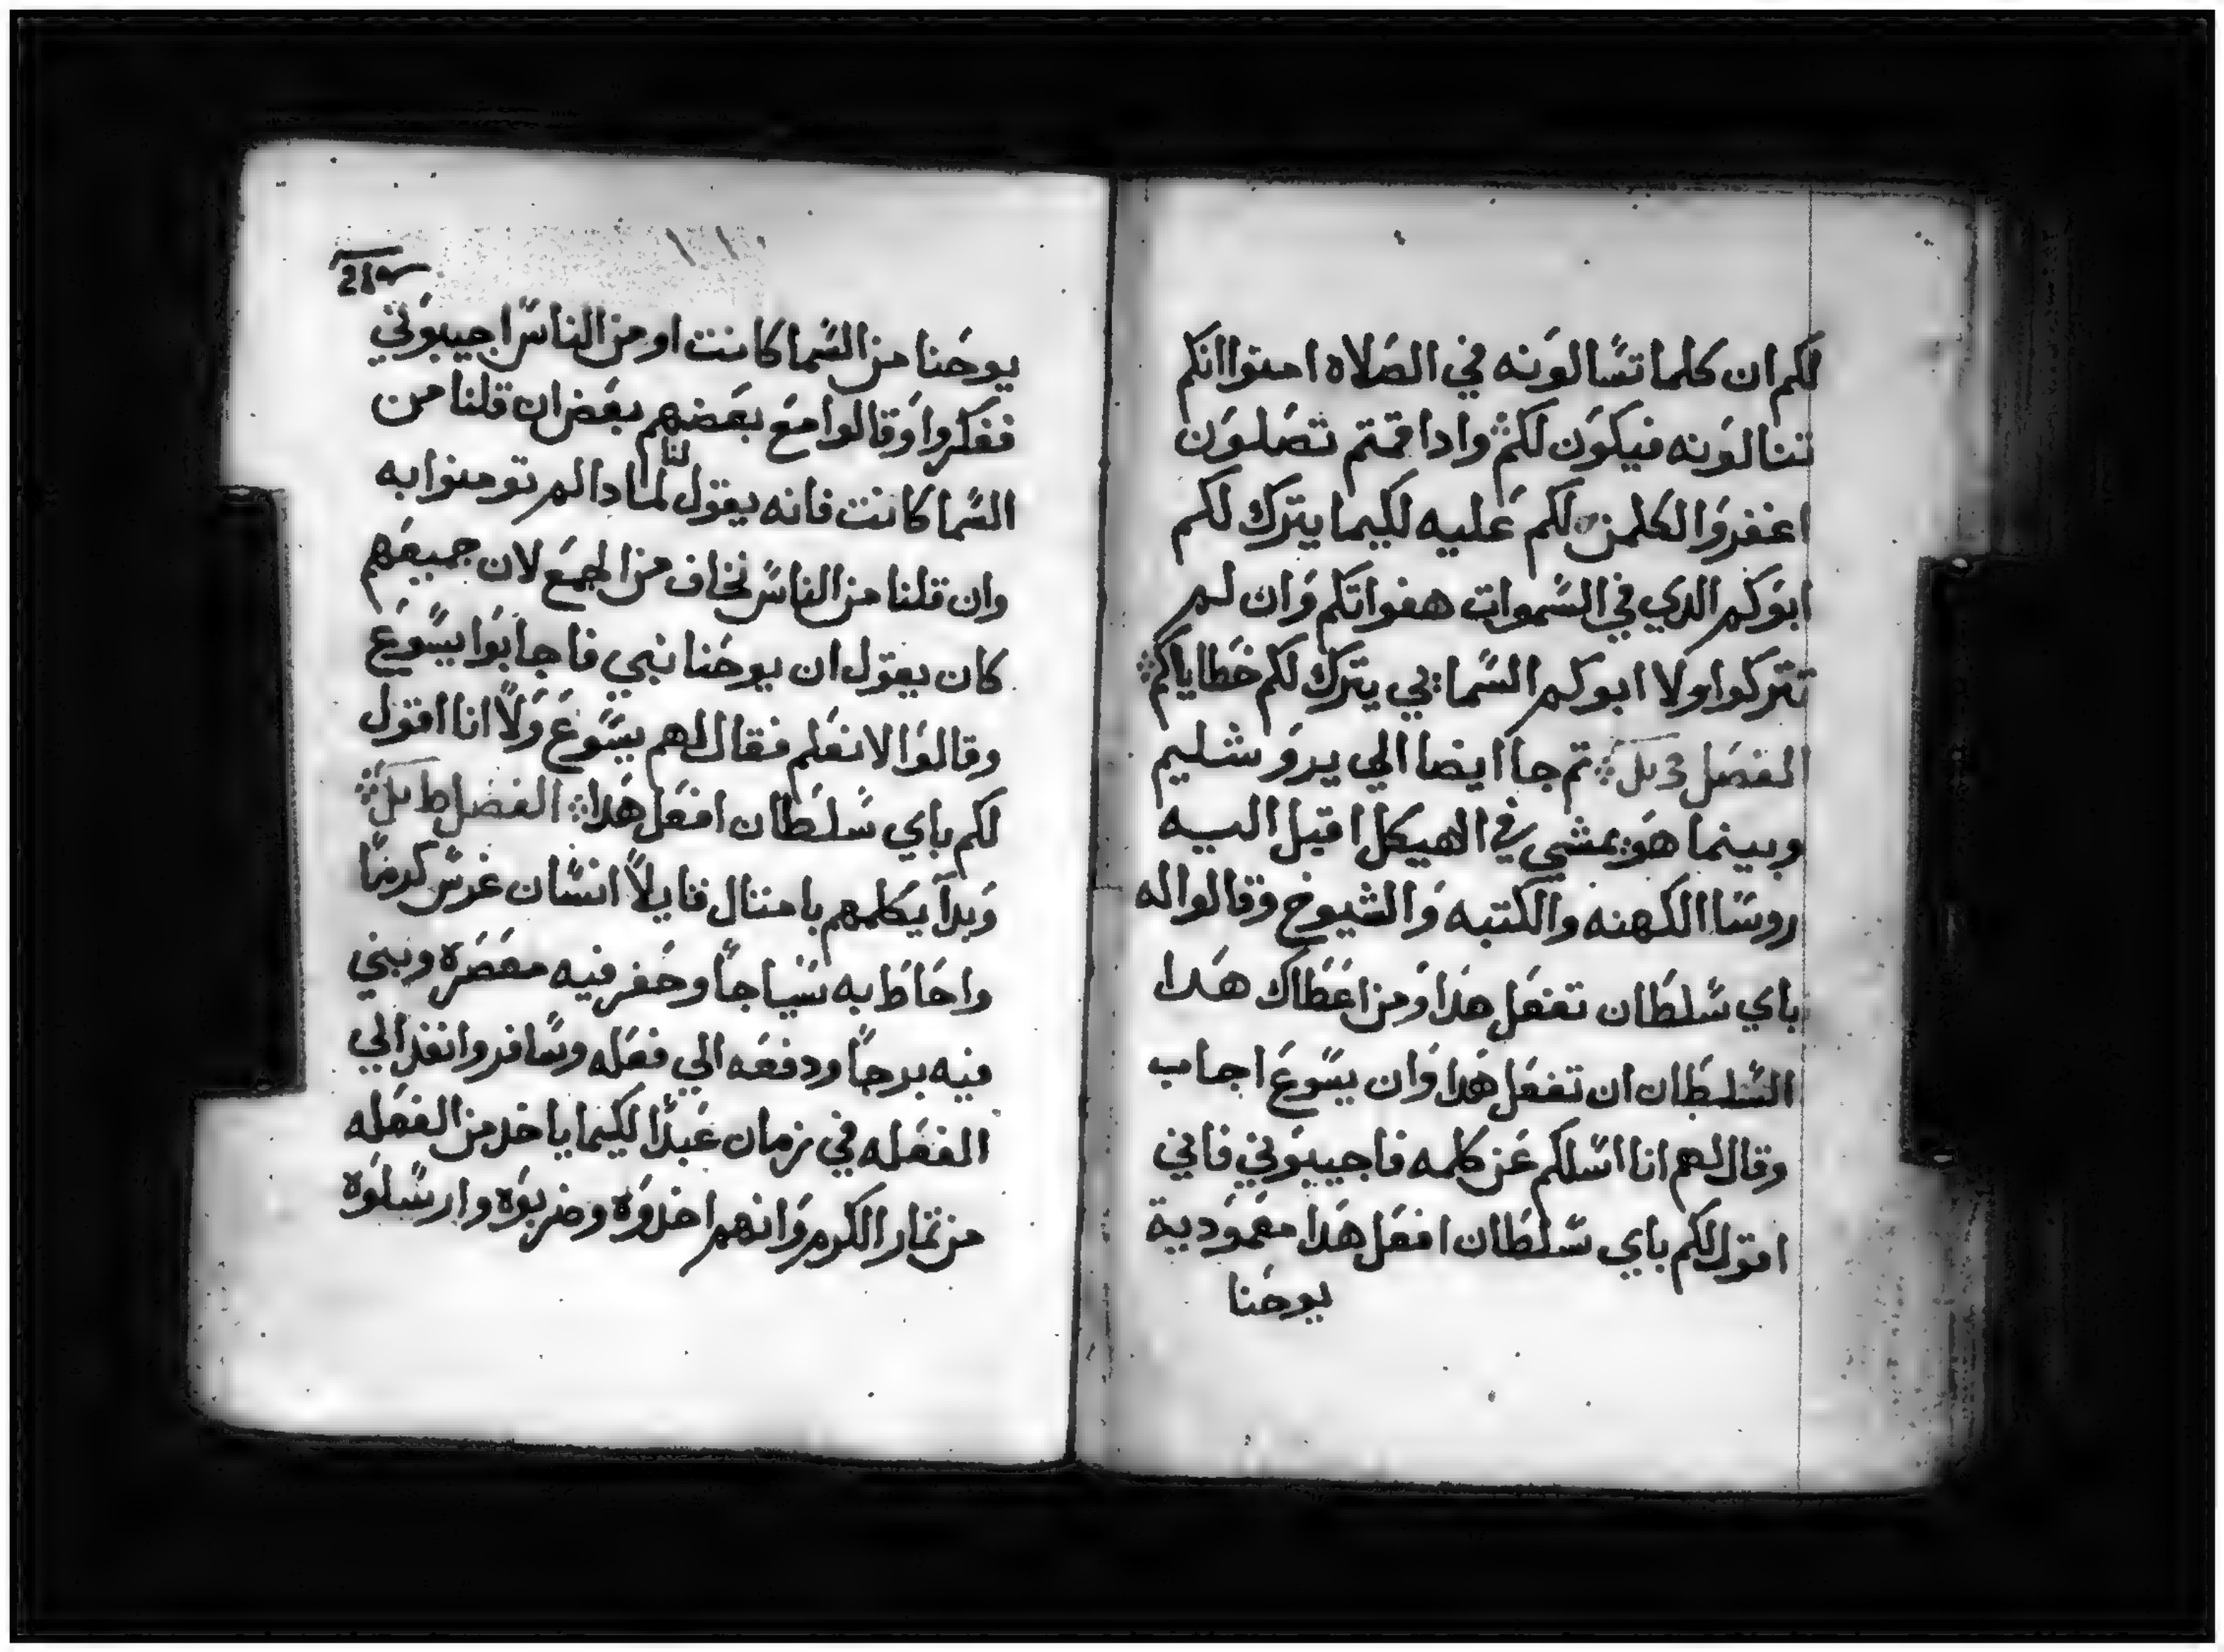 لكم ان كلما تسالونه في الصلاه امنوا انكم
تنالونه فيكون لكم واداقمتم تصلون
اغفروا لكلمن لكم عليه لكيما يترك لكم
ابوكم الدي في السموات هفواتكم وان لم
تتركوا ولا ابوكم السمايي يترك لكم خطاياكم
الفصل تم جا ايضا الي يروشليم
وبينما هو يمشي في الهيكل اقبل اليه
روسا الكهنه والكتبه والشيوخ وقالوا له
باي سلطان تفعل هدا ومن اعطاك هدا
السلطان ان تفعل هدا وان يسوع اجاب
وقال لهم انا اسلكم عن كلمه فاجيبوني فاني
اقول لكم باي سلطان افعل هدا معمودية
يوحنا
يوحنا من السما كانت او من الناس اجيبوني
ففكروا وقالوا مع بعضهم بعض ان قلنا من
السما كانت فانه يقول لنا لمادا لم تومنوا به
وان قلنا من الناس نخاف من الجمع لان جميعهم
كان يقول ان يوحنا نبي فاجابوا يسوع
وقالوا لا نعلم فقال لهم يسوع ولا انا اقول
لكم باي سلطان افعل هدا الفصل
وبدا يكلمهم بامتال قايلاً انسان غرس كرماً
واحاط به سياجاً وحفر فيه معصره وبني
فيه برجاً ودفعه الي فعله وسافر وانفد الي
الفعله في زمان عبداً لكيما ياخد من الفعله
من تمار الكرم وانهم اخدوه وضربوه وارسلوه